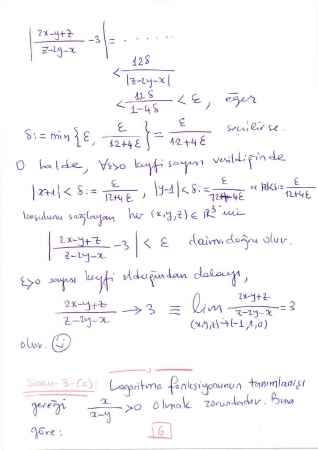 | (2x-y+z)/(z-2y-x) - 3 | = . . . . . .
< 12δ/|z-2y-x|
< 12δ/(1-4δ) < ε, eğer
δ := min{ε, ε/(12+4ε)} = ε/(12+4ε) seçilirse.
O halde, ∀ε>0 keyfi sayısı verildiğinde
|x+1| < δ := ε/(12+4ε), |y-1| < δ := ε/(12+4ε) ve |z| < δ := ε/(12+4ε)
koşulunu sağlayan her (x,y,z) ∈ ℝ³ için
| (2x-y+z)/(z-2y-x) - 3 | < ε daima doğru olur.
ε>0 sayısı keyfi olduğundan dolayı,
(2x-y+z)/(z-2y-x) → 3 ≡ lim (2x-y+z)/(z-2y-x) = 3
(x,y,z)→(-1,1,0)
olur. ☺
Soru-3-(c): Logaritma fonksiyonunun tanımlanışı
gereği x/(x-y) > 0 olmak zorundadır. Buna
göre: 6